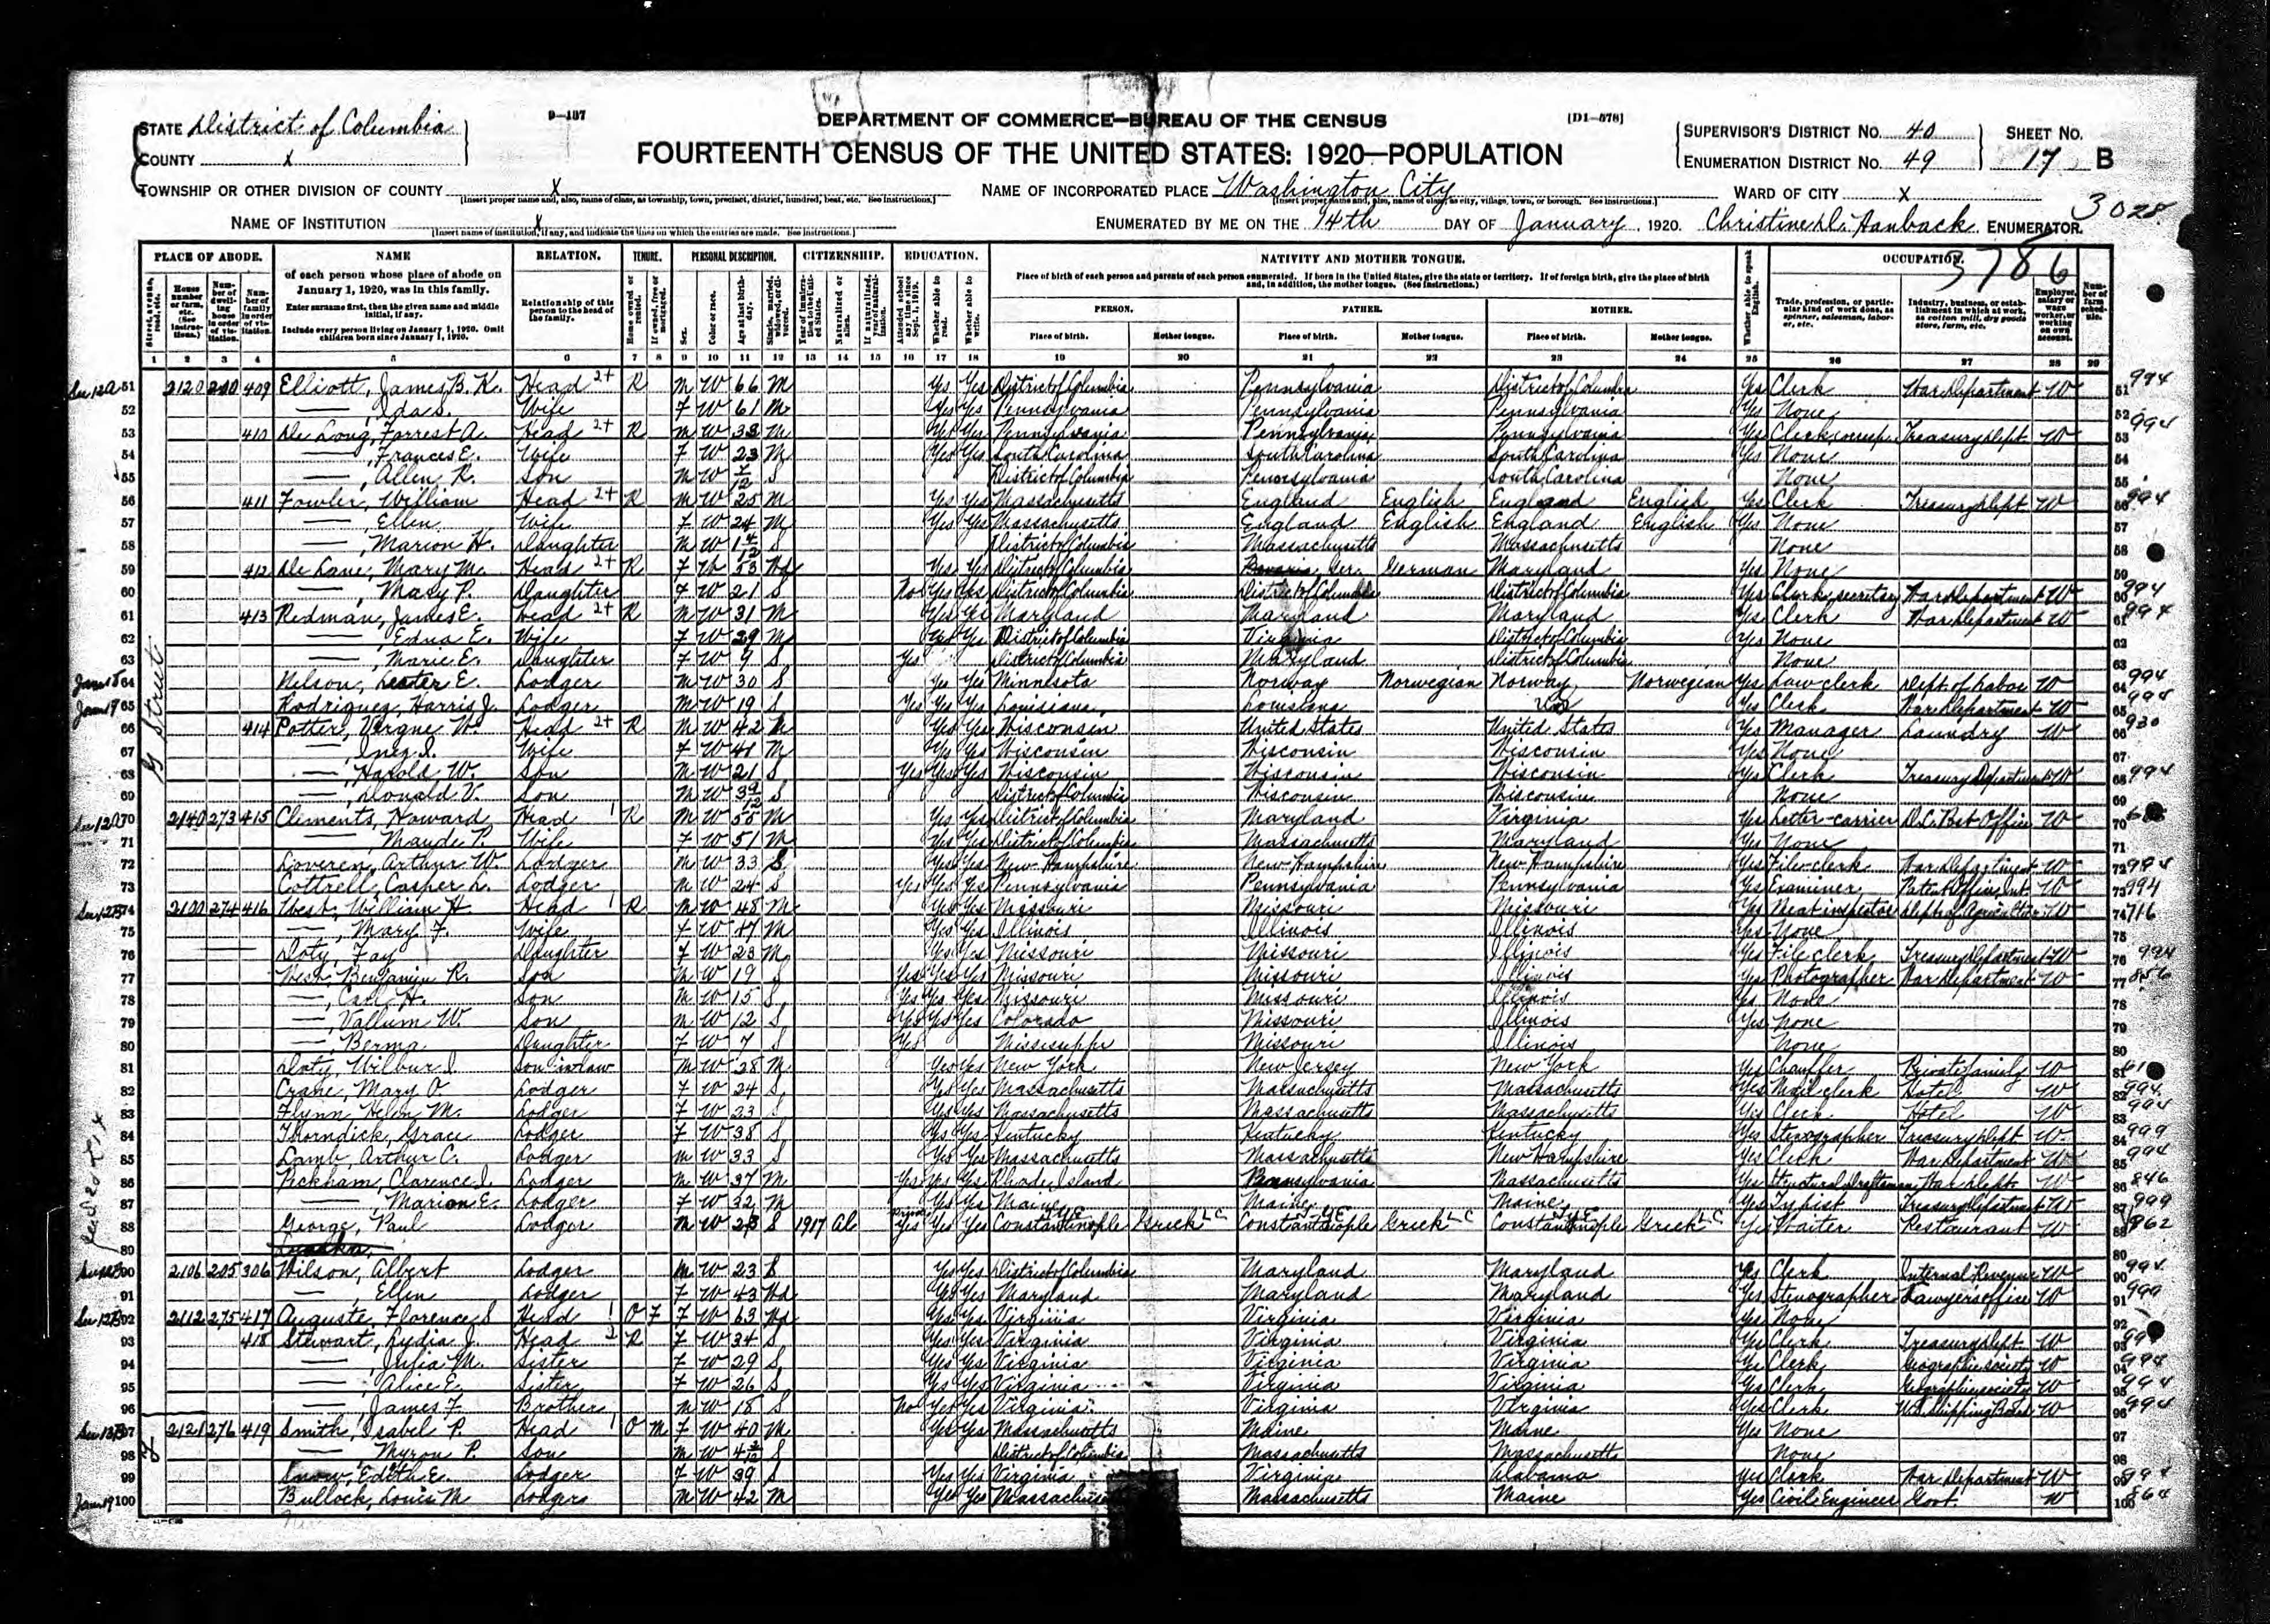 D-137
DEPARTMENT OF COMMERCE—BUREAU OF THE CENSUS
[D1-578]
FOURTEENTH CENSUS OF THE UNITED STATES: 1920—POPULATION
STATE District of Columbia
COUNTY x
SUPERVISOR'S DISTRICT No. 40
ENUMERATION DISTRICT No. 49
SHEET No. 17 B
TOWNSHIP OR OTHER DIVISION OF COUNTY X
[Insert proper name and, also, name of class, as township, town, precinct, district, hundred, beat, etc. See instructions.]
NAME OF INCORPORATED PLACE Washington City
[Insert proper name and, also, name of class, as city, village, town, or borough. See instructions.]
WARD OF CITY X
3028
NAME OF INSTITUTION X
[Insert name of institution, if any, and indicate the lines on which the entries are made. See instructions.]
ENUMERATED BY ME ON THE 14th DAY OF January, 1920. Christine D. Hanback, ENUMERATOR.
3786
PLACE OF ABODE. NAME RELATION. TENURE. PERSONAL DESCRIPTION. CITIZENSHIP. EDUCATION. NATIVITY AND MOTHER TONGUE. OCCUPATION.
of each person whose place of abode on January 1, 1920, was in this family.
Enter surname first, then the given name and middle initial, if any.
Include every person living on January 1, 1920. Omit children born since January 1, 1920.
Relationship of this person to the head of the family.
Place of birth of each person and parents of each person enumerated. If born in the United States, give the state or territory. If of foreign birth, give the place of birth and, in addition, the mother tongue. (See instructions.)
PERSON. FATHER. MOTHER.
Place of birth. Mother tongue. Place of birth. Mother tongue. Place of birth. Mother tongue.
Trade, profession, or particular kind of work done, as spinner, salesman, laborer, etc.
Industry, business, or establishment in which at work, as cotton mill, dry goods store, farm, etc.
1 2 3 4 5 6 7 8 9 10 11 12 13 14 15 16 17 18 19 20 21 22 23 24 25 26 27 28 29
51 2120 409 Elliott, James B. K. Head R M W 66 M Yes Yes District of Columbia Pennsylvania District of Columbia Yes Clerk War Department W 994
52 —, Ida S. Wife F W 61 M Yes Yes Pennsylvania Pennsylvania Pennsylvania Yes None
53 410 De Long, Forrest A. Head R M W 33 M Yes Yes Pennsylvania Pennsylvania Pennsylvania Yes Clerk Treasury Dept W 994
54 —, Frances E. Wife F W 23 M Yes Yes South Carolina South Carolina South Carolina Yes None
55 —, Allen R. Son M W 7/12 S District of Columbia Pennsylvania South Carolina None
56 411 Fowler, William Head R M W 25 M Yes Yes Massachusetts England English England English Yes Clerk Treasury Dept W 994
57 —, Ellen Wife F W 24 M Yes Yes Massachusetts England English England English Yes None
58 —, Marion H. Daughter M W 1 4/12 S District of Columbia Massachusetts Massachusetts None
59 412 De Lane, Mary M. Head R F W 53 Wd Yes Yes District of Columbia Ger. German Maryland Yes None
60 —, Mary P. Daughter F W 21 S No Yes Yes District of Columbia District of Columbia District of Columbia Yes Clerk, secretary War Department W 994
61 413 Redman, James E. Head R M W 31 M Yes Yes Maryland Maryland Maryland Yes Clerk War Department W 994
62 —, Edna E. Wife F W 29 M Yes Yes District of Columbia Virginia District of Columbia Yes None
63 —, Marie E. Daughter F W 9 S Yes District of Columbia Maryland District of Columbia None
64 Nelson, Lester E. Lodger M W 30 S Yes Yes Minnesota Norway Norwegian Norway Norwegian Yes Law clerk Dept. of Labor W 994
65 Rodriguez, Harris J. Lodger M W 19 S Yes Yes Yes Louisiana Louisiana Yes Clerk War Department W 994
66 414 Potter, Vergne W. Head R M W 42 M Yes Yes Wisconsin United States United States Yes Manager Laundry W 930
67 —, Inez I. Wife F W 41 M Yes Yes Wisconsin Wisconsin Wisconsin Yes None
68 —, Harold W. Son M W 21 S Yes Yes Yes Wisconsin Wisconsin Wisconsin Yes Clerk Treasury Department W 994
69 —, Donald V. Son M W 3 9/12 S District of Columbia Wisconsin Wisconsin None
70 2140 273 415 Clements, Howard Head 1 R M W 55 M Yes Yes District of Columbia Maryland Virginia Yes Letter-carrier D.C. Post Office W
71 —, Maude P. Wife F W 51 M Yes Yes District of Columbia Massachusetts Maryland Yes None
72 Loveren, Arthur W. Lodger M W 33 S Yes Yes New Hampshire New Hampshire New Hampshire Yes File-clerk War Department W 994
73 Cottrell, Casper L. Lodger M W 24 S Yes Yes Yes Pennsylvania Pennsylvania Pennsylvania Yes Examiner Patent Office, Int. W 994
74 2100 274 416 West, William H. Head 1 R M W 48 M Yes Yes Missouri Missouri Missouri Yes Meat inspector Dept. of Agriculture W 716
75 —, Mary F. Wife F W 47 M Yes Yes Illinois Illinois Illinois Yes None
76 Doty, Fay Daughter F W 23 M Yes Yes Missouri Missouri Illinois Yes File clerk Treasury Department W 994
77 West, Benjamin R. Son M W 19 S Yes Yes Yes Missouri Missouri Illinois Yes Photographer War Department W 856
78 —, Carl H. Son M W 15 S Yes Yes Yes Missouri Missouri Illinois Yes None
79 —, Vallum W. Son M W 12 S Yes Yes Yes Colorado Missouri Illinois Yes None
80 —, Berma Daughter F W 7 S Yes Mississippi Missouri Illinois None
81 Doty, Wilbur I. Son-in-law M W 28 M Yes Yes New York New Jersey New York Yes Chauffer Private family W
82 Crane, Mary O. Lodger F W 24 S Yes Yes Massachusetts Massachusetts Massachusetts Yes Mail clerk Hotel W 994
83 Flynn, Helen M. Lodger F W 23 S Yes Yes Massachusetts Massachusetts Massachusetts Yes Clerk Hotel W 994
84 Thorndick, Grace Lodger F W 38 S Yes Yes Kentucky Kentucky Kentucky Yes Stenographer Treasury Dept W 999
85 Lamb, Arthur C. Lodger M W 33 S Yes Yes Massachusetts Massachusetts New Hampshire Yes Clerk War Department W 994
86 Peckham, Clarence I. Lodger M W 37 M Yes Yes Yes Rhode Island Pennsylvania Massachusetts Yes Structural Draftsman War Dept. W 846
87 —, Marion E. Lodger F W 32 M Yes Yes Maine Maine Maine Yes Typist Treasury Department W 999
88 George, Paul Lodger M W 23 S 1917 Al Yes Yes Yes Constantinople Greek Constantinople Greek Constantinople Greek Yes Waiter Restaurant W 862
89
90 2106 205 306 Wilson, Albert Lodger M W 23 S Yes Yes District of Columbia Maryland Maryland Yes Clerk Internal Revenue W 994
91 —, Ellen Lodger F W 43 Wd Yes Yes Maryland Maryland Maryland Yes Stenographer Lawyers office W 999
92 2112 275 417 Auguste, Florence S Head 1 O F F W 63 Wd Yes Yes Virginia Virginia Virginia Yes None
93 418 Stewart, Lydia J. Head 2 R F W 34 S Yes Yes Virginia Virginia Virginia Yes Clerk Treasury Dept. W
94 —, Julia M. Sister F W 29 S Yes Yes Virginia Virginia Virginia Yes Clerk Geographic society W 994
95 —, Alice E. Sister F W 26 S Yes Yes Virginia Virginia Virginia Yes Clerk Geographic society W 994
96 —, James F. Brother M W 18 S No Yes Yes Virginia Virginia Virginia Yes Clerk U.S. Shipping Board W 994
97 2121 276 419 Smith, Isabel P. Head 1 O M F W 40 M Yes Yes Massachusetts Maine Maine Yes None
98 —, Myron P. Son M W District of Columbia Massachusetts Massachusetts None
99 Snow, Edith E. Lodger F W 39 S Yes Yes Virginia Virginia Alabama Yes Clerk War Department W 994
100 Bullock, Louis M Lodger M W 42 M Yes Yes Massachusetts Massachusetts Maine Yes Civil Engineer Govt. W 864
G Street